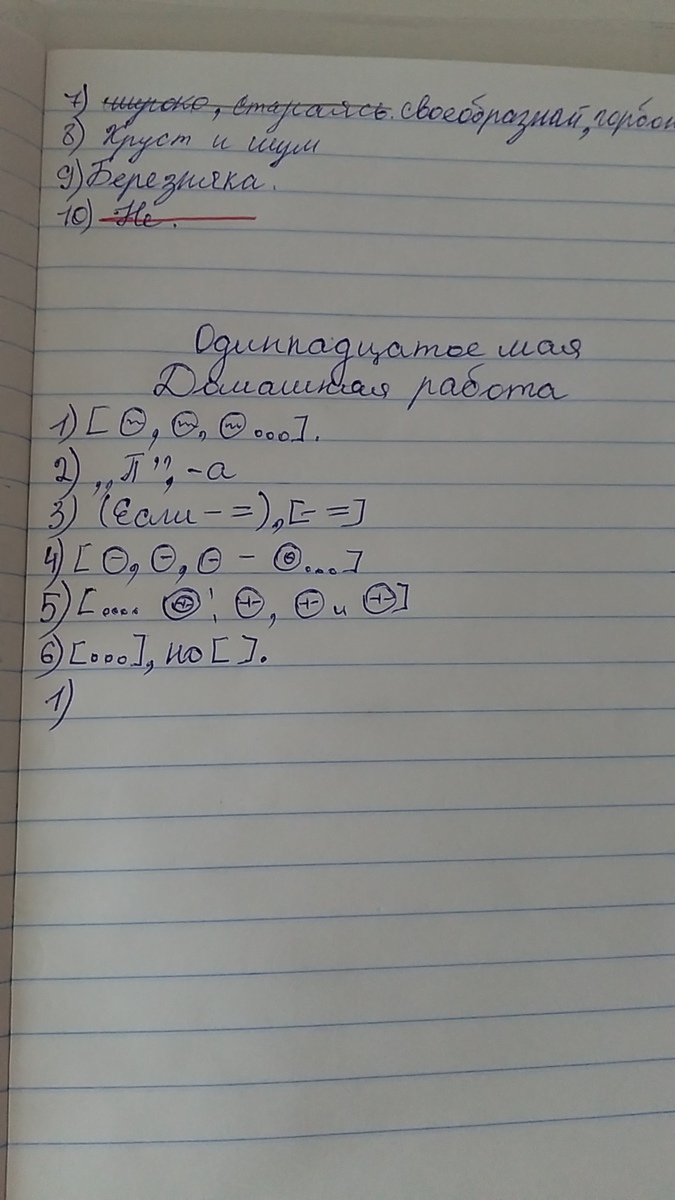 7) широко, стараясь. своеобразной, горбон
8) Хруст и шум
9) Березняка.
10) Не.
Одиннадцатое мая
Домашняя работа
1) [ ⊖, ⊖, ⊖ ...].
2) „П”, -а
3) (Если - =), [- =]
4) [ ⊖, ⊖, ⊖ - ⊖...]
5) [.... ⊕: ⊕, ⊕ и ⊕]
6) [...], но [ ].
1)